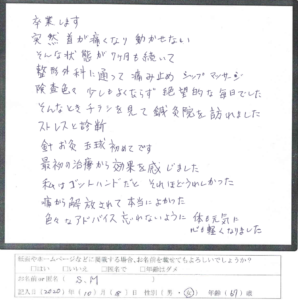 卒業します
突然首が痛くなり動かせない
そんな状態が7ヶ月も続いて
整形外科に通って痛み止め シップ マッサージ
検査色々 少しもよくならず 絶望的な毎日でした
そんなときチラシを見て鍼灸院を訪れました
ストレスと診断
針 お灸 玉球 初めてです
最初の治療から効果を感じました
私はゴットハンドだと それほどうれしかった
痛から解放されて本当によかった
色々なアドバイス忘れないように 体も元気に
心も軽くなりました
紙面やホームページなどに掲載する場合、お名前を載せてもよろしいでしょうか?
□はい □いいえ □匿名で □年齢はダメ
お名前or匿名( S.M )
記入日(2020)年(10)月( )日 性別(男・女) 年齢(67)歳